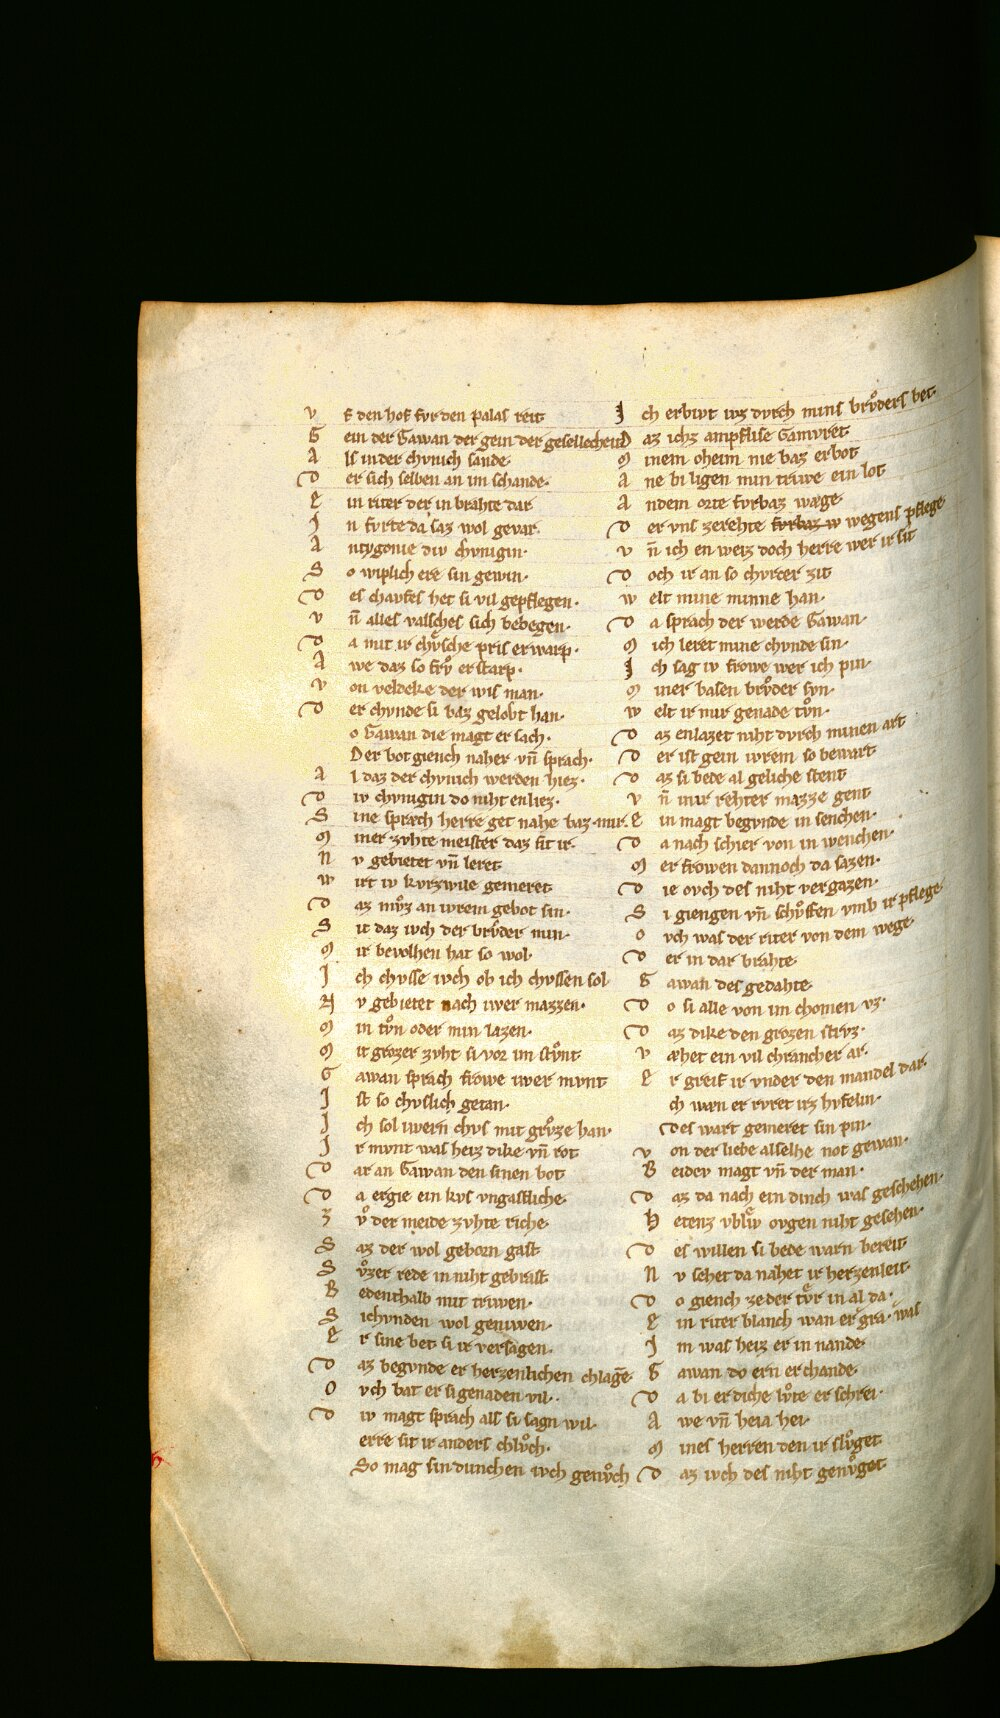 V f den hof fvr den palas reit
G ein der Gawan der gein der gesellecheit
A ls in der chvnich sande·
D er sich selben an im schande·
E in riter der in brahte dar
J n fvrte da saz wol gevar·
A ntygonie div chvnigin·
S o wiplich ere sin gewin·
D es chavfes het si vil gepflegen·
V n̄ alles valsches sich bewegen·
D a mit ir chvͤsche pris erwarp·
A we daz so frvͦ erstarp·
V on veldeke der wis man·
D er chvnde si baz gelobt han·
o Gawan die magt er sach·
Der bot giench naher vn̄ sprach·
A l daz der chvnich werden hiez·
D iv chvnigin do niht enliez·
S ine sprach herre get nahe baz mir·
M iner zvhte meister daz sit ir·
N v gebietet vn̄ leret
W irt iv kvrzwile gemeret
D az mvͦz an iwrem gebot sin·
S it daz ivch der brvͦder min·
M ir bevolhen hat so wol·
J ch chvsse ivch ob ich chvssen sol
N v gebietet nach iwer mazzen·
M in tvͦn oder min lazen·
M it grozer zvht si vor im stvͦnt
G awan sprach frowe iwer mvnt
J st so chvslich getan·
J ch sol iwern chvs mit grvͦze han·
J r mvnt was heiz dike vn̄ rot
D ar an Gawan den sinen bot
D a ergie ein kvs vngastliche·
Z vͦ der meide zvhte riche
S az der wol geborn gast
S vͦzer rede in niht gebrast
B edenthalb mit triwen·
S i chvnden wol geniwen·
E r sine bet si ir versagen·
D az begvnde er herzenlichen chlagē·
O vch bat er si genaden vil·
D iv magt sprach als si sagn wil·
erre sit ir anders chlvͦch·
So mag sin dvnchen ivch genvͦch
J ch erbivt ivz dvrch mins brvͦders bet·
D az ichz ampflise Gamvret
M inem oheim nie baz erbot
A ne bi ligen min triwe ein lot
A n dem orte fvrbaz wæge
D er vns zerehte fvrbaz w wegens pflege
V n̄ ich en weiz doch herre wer ir sit
D och ir an so chvrcer zit
W elt mine minne han·
D a sprach der werde Gawan·
M ich leret mine chvnde sin·
J ch sag iv frowe wer ich pin·
M iner basen brvͦder svn·
W elt ir mir genade tvͦn·
D az enlazet niht dvrch minen art
D er ist gein iwrem so bewart
D az si bede al geliche stent
V n̄ in ir rehter mazze gent
E in magt begvnde in senchen·
D a nach schier von in wenchen·
M er frowen dannoch da sazen·
D ie ovch des niht vergazen·
S i giengen vn̄ schvͦffen vmb ir pflege·
O vch was der riter von dem wege·
D er in dar brahte·
G awan des gedahte·
D o si alle von im chomen vz·
D az dike den grozen strvz·
V æhet ein vil chrancher ar·
E r greif ir vnder den mandel dar·
ch wæn er rvret irz hvfelin·
Des wart gemeret sin pin·
V on der liebe alselhe not gewan·
B eidev magt vn̄ der man·
D az da nach ein dinch was geschehen·
H etenz vbliv ovgen niht gesehen·
D es willen si bede warn bereit
N v sehet da nahet ir herzenleit·
D o giench ze der tvͤr in al da·
E in riter blanch wan er gra· was
J m was heiz er in nande·
G awan do ern erchande·
D a bi er diche lvͦte er schrei·
A we vn̄ heia hei·
M ines herren den ir slvͦget
D az ivch des niht genvͦget